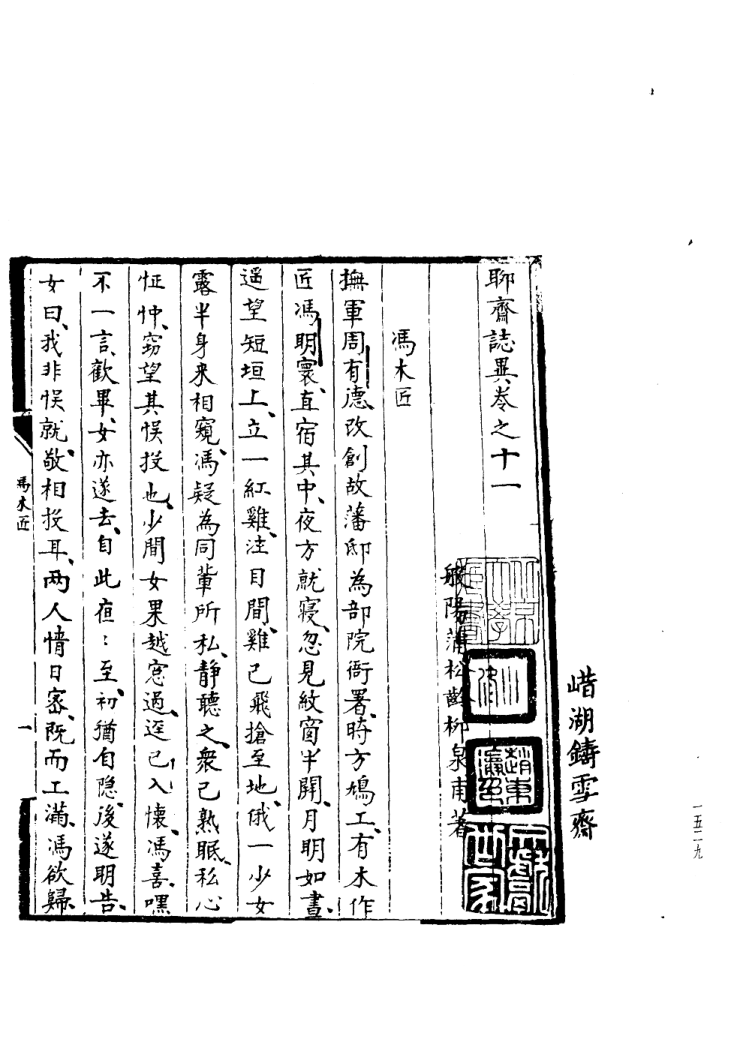 聊齋誌異卷之十一
般陽蒲松齡柳泉甫著
馮木匠
撫軍周有德、改創故藩邸為部院衙署、時方鳩工、有木作
匠馮明寰、直宿其中、夜方就寢、忽見紋窗半開、月明如晝、
遥望短垣上、立一紅雞、注目間、雞已飛搶至地、俄一少女
露半身來相窺、馮疑為同輩所私、靜聽之、衆已熟眠、私心
怔忡、窃望其悞投也、少間女果越窓過、逕已入懷、馮喜、嘿
不一言、歡畢、女亦遂去、自此夜：至、初猶自隐、後遂明告、
女曰、我非悞就、敬相投耳、两人情日密、既而工滿、馮欲歸、
馮木匠
一
㟙湖鑄雪齋
一五二九